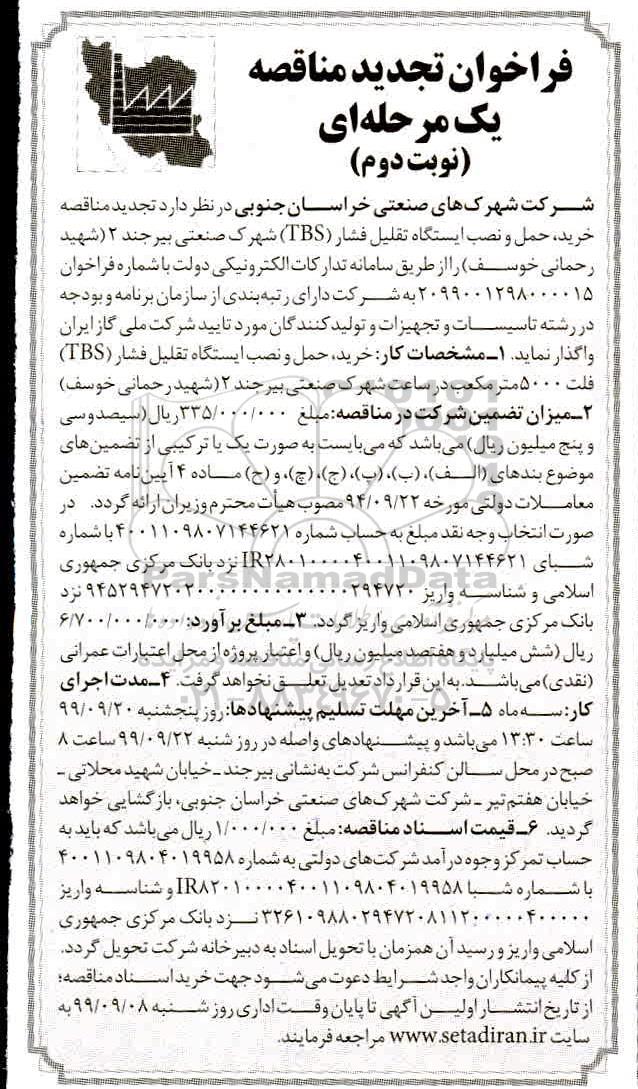 فراخوان تجدید مناقصه
یک مرحله‌ای
(نوبت دوم)
شرکت شهرک‌های صنعتی خراسان جنوبی در نظر دارد تجدید مناقصه
خرید، حمل و نصب ایستگاه تقلیل فشار (TBS) شهرک صنعتی بیرجند ۲ (شهید
رحمانی خوسف) را از طریق سامانه تدارکات الکترونیکی دولت با شماره فراخوان
۲۰۹۹۰۰۱۲۹۸۰۰۰۰۱۵ به شرکت دارای رتبه‌بندی از سازمان برنامه و بودجه
در رشته تاسیسات و تجهیزات و تولیدکنندگان مورد تایید شرکت ملی گاز ایران
واگذار نماید. ۱ـ مشخصات کار: خرید، حمل و نصب ایستگاه تقلیل فشار (TBS)
فلت ۵۰۰۰ متر مکعب در ساعت شهرک صنعتی بیرجند ۲ (شهید رحمانی خوسف)
۲ـ میزان تضمین شرکت در مناقصه: مبلغ ۳۳۵/۰۰۰/۰۰۰ ریال (سیصد و سی
و پنج میلیون ریال) می‌باشد که می‌بایست به صورت یک یا ترکیبی از تضمین‌های
موضوع بندهای (الف)، (ب)، (پ)، (ج)، (چ)، و (ح) ماده ۴ آیین‌نامه تضمین
معاملات دولتی مورخه ۹۴/۰۹/۲۲ مصوب هیأت محترم وزیران ارائه گردد. در
صورت انتخاب وجه نقد مبلغ به حساب شماره ۴۰۰۱۱۰۹۸۰۷۱۴۴۶۲۱ با شماره
شبای IR۲۸۰۱۰۰۰۰۴۰۰۱۱۰۹۸۰۷۱۴۴۶۲۱ نزد بانک مرکزی جمهوری
اسلامی و شناسه واریز نزد
بانک مرکزی جمهوری اسلامی واریز گردد. ۳ـ مبلغ برآورد: ۶/۷۰۰/۰۰۰/۰۰۰
ریال (شش میلیارد و هفتصد میلیون ریال) و اعتبار پروژه از محل اعتبارات عمرانی
(نقدی) می‌باشد. به این قرارداد تعدیل تعلق نخواهد گرفت. ۴ـ مدت اجرای
کار: سه ماه ۵ـ آخرین مهلت تسلیم پیشنهادها: روز پنجشنبه ۹۹/۰۹/۲۰
ساعت ۱۳:۳۰ می‌باشد و پیشنهادهای واصله در روز شنبه ۹۹/۰۹/۲۲ ساعت ۸
صبح در محل سالن کنفرانس شرکت به‌نشانی بیرجند ـ خیابان شهید محلاتی ـ
خیابان هفتم تیر ـ شرکت شهرک‌های صنعتی خراسان جنوبی، بازگشایی خواهد
گردید. ۶ـ قیمت اسناد مناقصه: مبلغ ۱/۰۰۰/۰۰۰ ریال می‌باشد که باید به
حساب تمرکز وجوه درآمد شرکت‌های دولتی به شماره ۴۰۰۱۱۰۹۸۰۴۰۱۹۹۵۸
با شماره شبا IR۸۲۰۱۰۰۰۰۴۰۰۱۱۰۹۸۰۴۰۱۹۹۵۸ و شناسه واریز
۳۲۶۱۰۹۸۸۰۲۹۴۷۲۰۸۱۱۲۰۰۰۰۰۴۰۰۰۰۰ نزد بانک مرکزی جمهوری
اسلامی واریز و رسید آن همزمان با تحویل اسناد به دبیرخانه شرکت تحویل گردد.
از کلیه پیمانکاران واجد شرایط دعوت می‌شود جهت خرید اسناد مناقصه؛
از تاریخ انتشار اولین آگهی تا پایان وقت اداری روز شنبه ۹۹/۰۹/۰۸ به
سایت www.setadiran.ir مراجعه فرمایند.
ParsNamadData
پایگاه اطلاع رسانی مناقصه و مزایده
۰۲۱-۸۸۳۴۹۶۷۰-۵